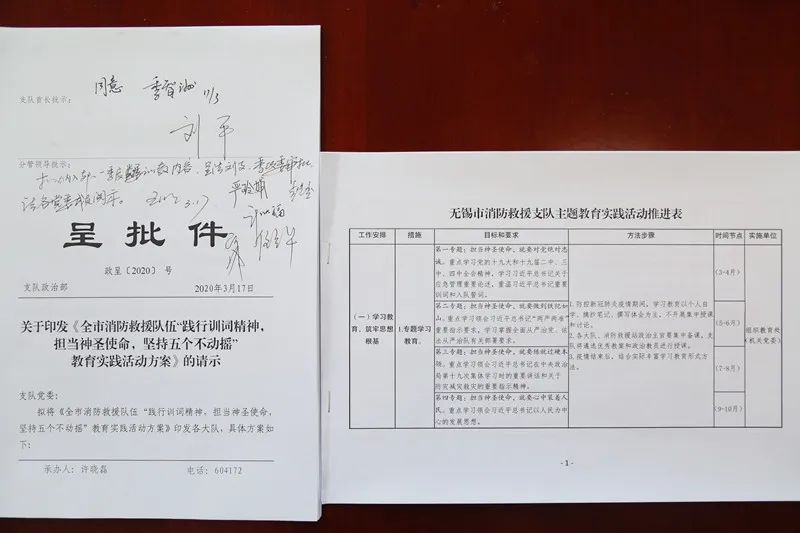 支队首长批示：
同意
刘平
分管领导批示：
呈批件
政呈〔2020〕 号
支队政治部 2020年3月17日
关于印发《全市消防救援队伍“践行训词精神，
担当神圣使命，坚持五个不动摇”
教育实践活动方案》的请示
支队党委：
拟将《全市消防救援队伍“践行训词精神，担当神圣使命，
坚持五个不动摇”教育实践活动方案》印发各大队，具体方案如
下：
承办人：许晓磊 电话：604172
无锡市消防救援支队主题教育实践活动推进表
工作安排 措施 目标和要求 方法步骤 时间节点 实施单位
（一）学习教
育，筑牢思想
根基
1.专题学习
教育。
第一专题：担当神圣使命、就要对党绝对忠
诚。重点学习党的十九大和十九届二中、三
中、四中全会精神，学习习近平总书记关于
应急管理重要论述，重温习近平总书记重要
训词和入队誓词。
第二专题：担当神圣使命、就要做到铁纪如
山。重点学习领会习近平总书记“两严两准”
重要指示要求，学习掌握全面从严治党、依
法从严治队有关部署要求。
第三专题：担当神圣使命、就要练就过硬本
领。重点学习领会习近平总书记在中央政治
局第十九次集体学习时的重要讲话和关于
防灾减灾救灾的重要指示精神。
第四专题：担当神圣使命、就要心中装着人
民。重点学习领会习近平总书记以人民为中
心的发展思想。
1.防控新冠肺炎疫情期间，学习教育以个人自
学、摘抄笔记、撰写体会为主，不开展集中授课
和讨论。
2.各大队、消防救援站政治主官要集中备课，支
队将遴选优秀教案和政治教员进行授课。
3.疫情结束后，结合实际丰富学习教育形式方
法。
（3-4月）
（5-6月）
（7-8月）
（9-10月）
组织教育处
（机关党委）
- 1 -